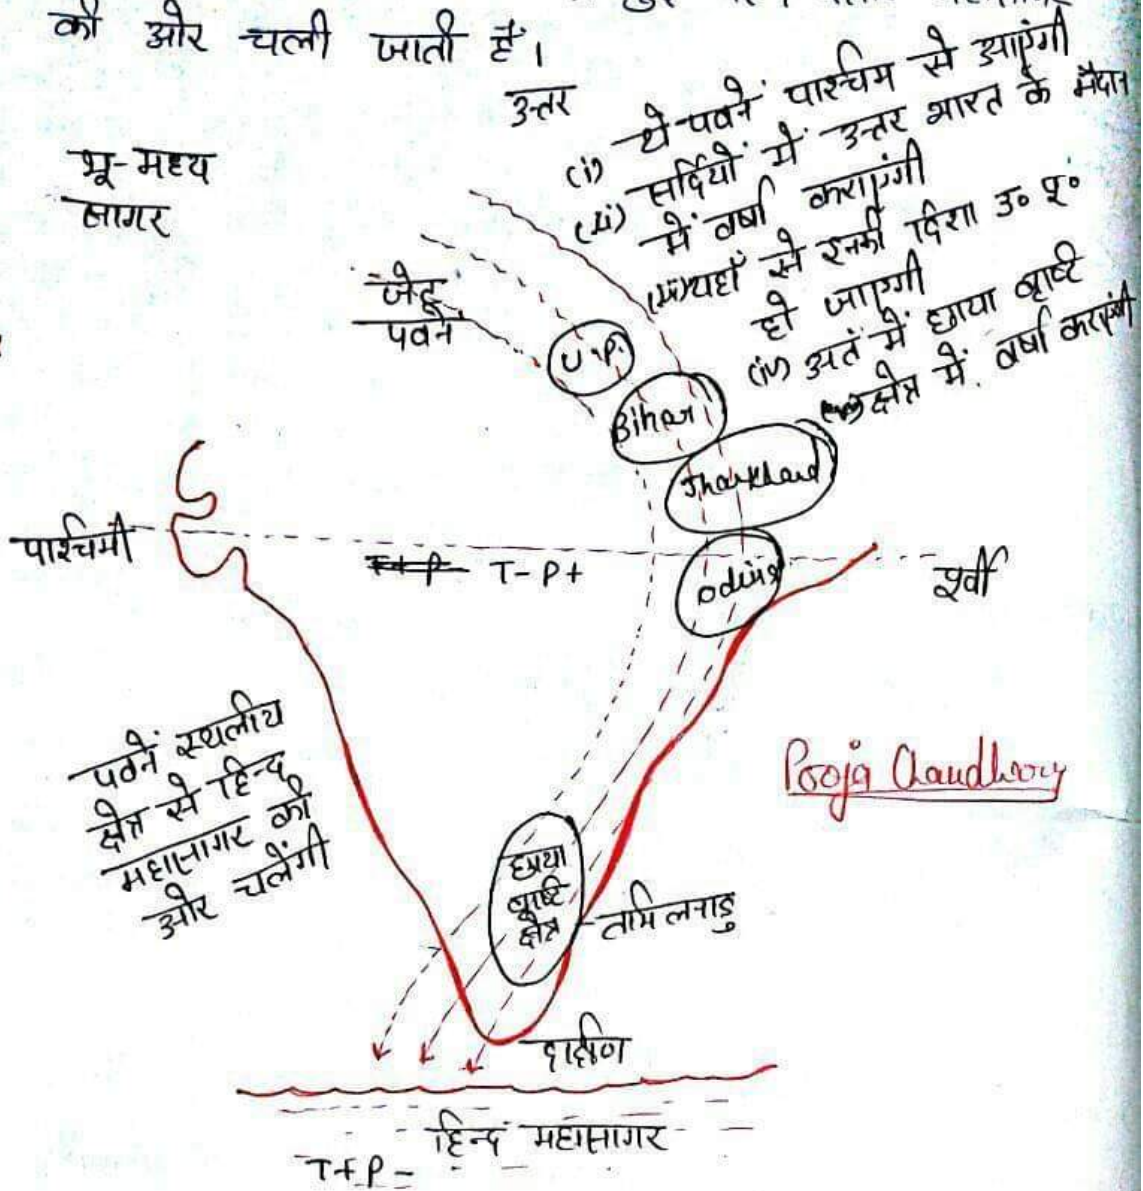 की ओर चली जाती है।
उत्तर
भू-मध्य
सागर
(i) ये पवनें पश्चिम से आएंगी
(ii) सर्दियों में उत्तर भारत के मैदान
में वर्षा कराएंगी
(iii) यहाँ से इनकी दिशा उ० पू०
हो जाएगी
(iv) अतं में छाया वृष्टि
क्षेत्र में वर्षा कराएंगी
जेट
पवनें
U.P.
Bihar
Jharkhand
Odisha
पश्चिमी
T+P- T-P+
पूर्वी
पवनें स्थलीय
क्षेत्र से हिन्द
महासागर की
ओर चलेंगी
Pooja Chaudhary
छाया
वृष्टि
क्षेत्र
तमिलनाडु
दक्षिण
हिन्द महासागर
T+P-